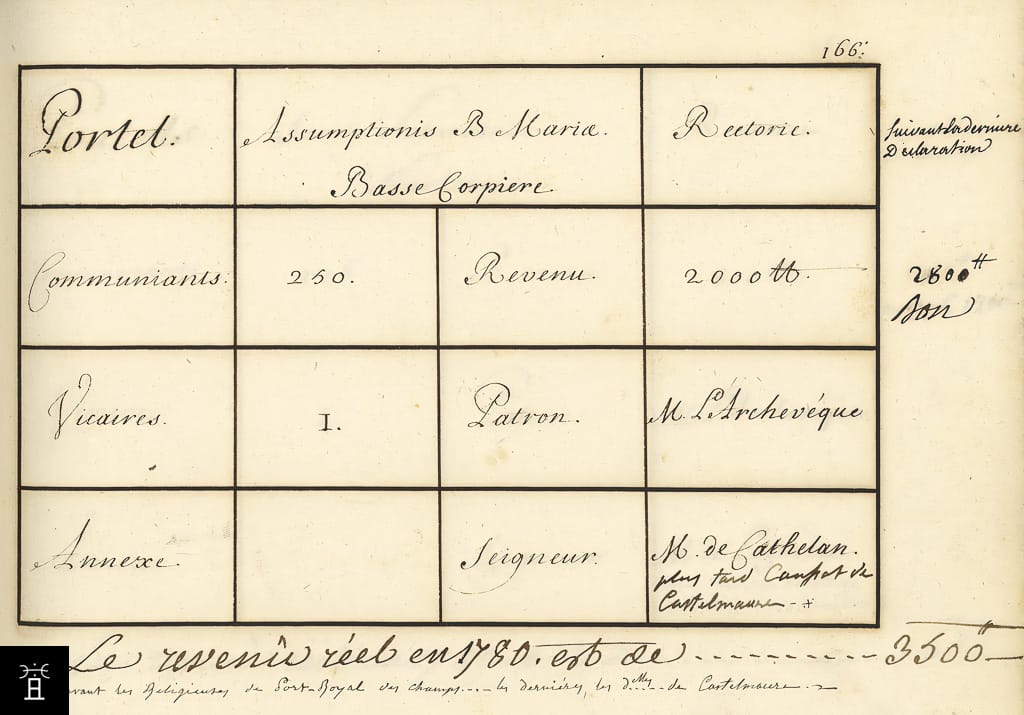 166.
Portel.
Assumptionis B Mariæ.
Basse Corpiere.
Rectorie.
suivant la derniere
Declaration
Communiants.
250.
Revenu.
2000 tt.
2800 tt
Bon
Vicaires.
1.
Patron.
M. L'Archevéque
Annexe.
Seigneur.
M. de Cathelan.
plus tard de
Castelmaure - +
Le revenû réel en 1780. est de - - - - - - - - 3500 tt
les Religieuses de Port-Royal des champs... les derniéres, les d.lles de Castelmaure.